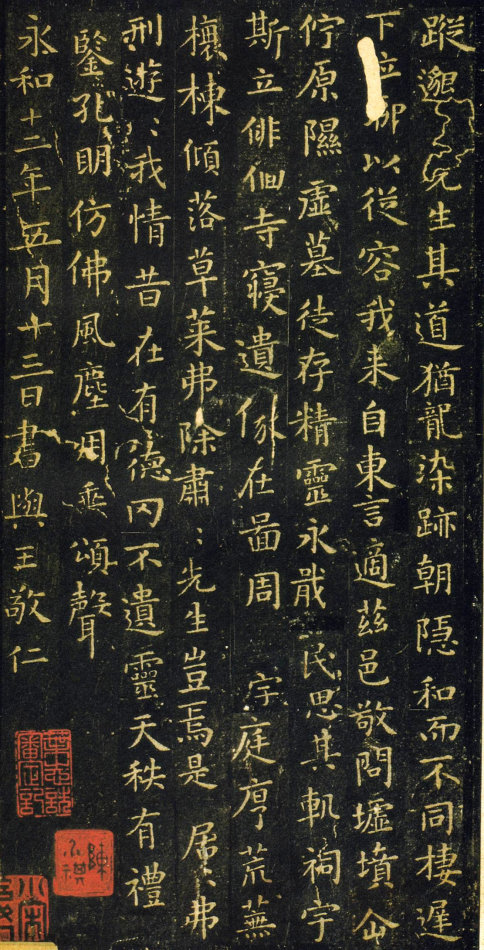 蹤邈〻先生其道猶龍染跡朝隱和而不同棲遲
下位聊以從容我来自東言適茲邑敬問墟墳企
佇原隰虛墓徒存精靈永戢民思其軌祠宇
斯立俳佪寺寢遺像在啚周宇庭序荒蕪
榱棟傾落草萊弗除肅〻先生豈焉是居〻弗
刑遊〻我情昔在有德罔不遺靈天秩有禮
鑒孔明仿佛風塵用垂頌聲
永和十二年五月十三日書與王敬仁